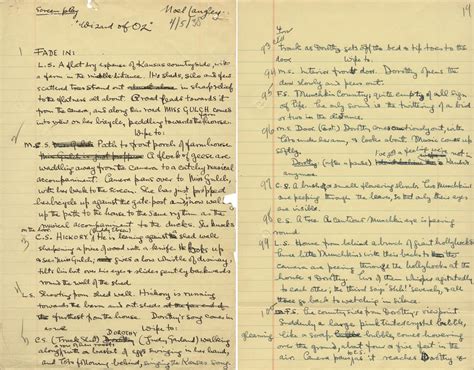 Screen play
Noel Langley
"Wizard of OZ"
4/5/38
1
FADE IN:
L.S. A flat dry expanse of Kansas countryside, with
a farm in the middle distance. Its sheds, silo and few
scattered trees stand out in sharp relief
to the flatness all about. A road leads towards it
from the camera, and along this road MISS GULCH comes
into view on her bicycle, peddling towards the house.
Wipe to:
M.S. Path to front porch of farmhouse
A flock of geese are
waddling away from the camera to a catchy musical
accompaniment. Camera pans over to Miss Gulch,
with her back to the screen. She has just propped
her bicycle up against the gate post and now walks
up the path to the house to the same rhythm as the
musical accompaniment to the ducks.
C.S. HICKORY
sharpening a piece of wood with a knife. He looks up
sees Miss Gulch, gives a low whistle of dismay,
tilts his hat over his eyes & slides gently backwards
round the wall of the shed.
L.S. Shooting from shed wall. Hickory is running
towards the barns and sheds at the
furthest from the house. Dorothy's song comes in
Wipe to:
DOROTHY
C.S. (Truck Shot) (Judy Garland) walking
along with a basket of eggs swinging in her hand,
and Toto following behind, singing the Kansas Song.
19
93
Frank as Dorothy gets off the bed & tip toes to the
door
Wipe to:
94
M.S. Interior front door. Dorothy opens the
door slowly and peers out.
95
F.S. Munchkin Country; quite empty of all sign
of life. The only sound is the twittering of a bird
or two in the distance.
96
M.S. Door (Ext) Dorothy comes cautiously out, with
Toto under her arm, & looks about. Music comes up
softly.
Dorothy (after a pause)
anymore.
97
C.S. A bush, & a small glowering
are peeping through the leaves, so that only their eyes
are visible.
98
C.S. A tree. A cautious Munchkin eye is peering
round
99
L.S. House from behind a branch of giant hollyhocks
three little Munchkins with their backs to the
camera are peeping through the hollyhocks at the
house & Dorothy. One of them whispers agitatedly
to each other; the third says 'Shh' severely, & all
go back to watching in silence.
F.S. the country side from Dorothy's viewpoint
Suddenly a large pink tinted crystal bubble,
like a soap bubble comes hovering
over the ground, but four or five feet in the
air. Camera pans as it reaches Dorothy &